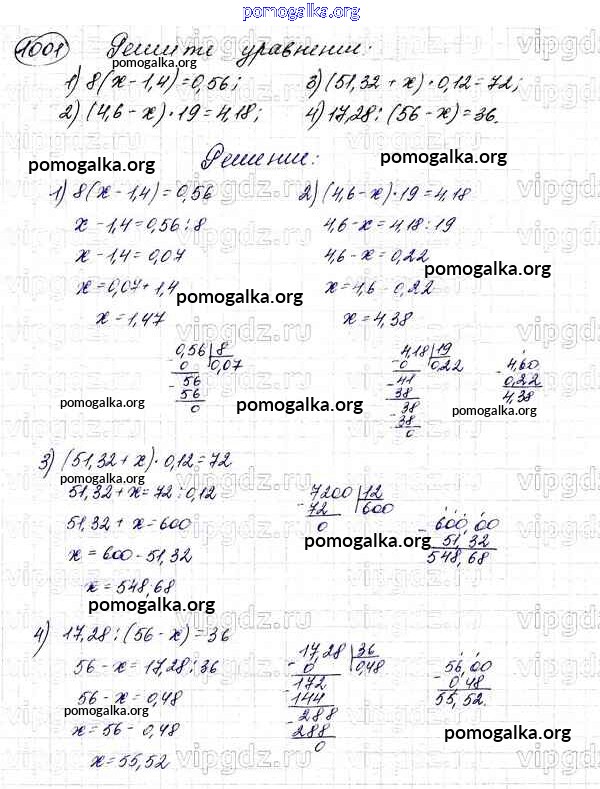 pomogalka.org
1001 Решите уравнения:
1) 8(x - 1,4) = 0,56; 3) (51,32 + x) · 0,12 = 72;
2) (4,6 - x) · 19 = 4,18; 4) 17,28 : (56 - x) = 36.
Решение:
1) 8(x - 1,4) = 0,56
x - 1,4 = 0,56 : 8
x - 1,4 = 0,07
x = 0,07 + 1,4
x = 1,47
0,56 | 8
0 | 0,07
- 56
56
0
2) (4,6 - x) · 19 = 4,18
4,6 - x = 4,18 : 19
4,6 - x = 0,22
x = 4,6 - 0,22
x = 4,38
- 4,18 | 19
0 | 0,22
- 41
38
- 38
- 38
0
- 4,60
0,22
4,38
3) (51,32 + x) · 0,12 = 72
51,32 + x = 72 : 0,12
51,32 + x = 600
x = 600 - 51,32
x = 548,68
- 7200 | 12
72 | 600
0
- 600,00
51,32
548,68
4) 17,28 : (56 - x) = 36
56 - x = 17,28 : 36
56 - x = 0,48
x = 56 - 0,48
x = 55,52
- 17,28 | 36
0 | 0,48
- 172
144
- 288
288
0
- 56,00
0,48
55,52.
pomogalka.org
vipgdz.ru